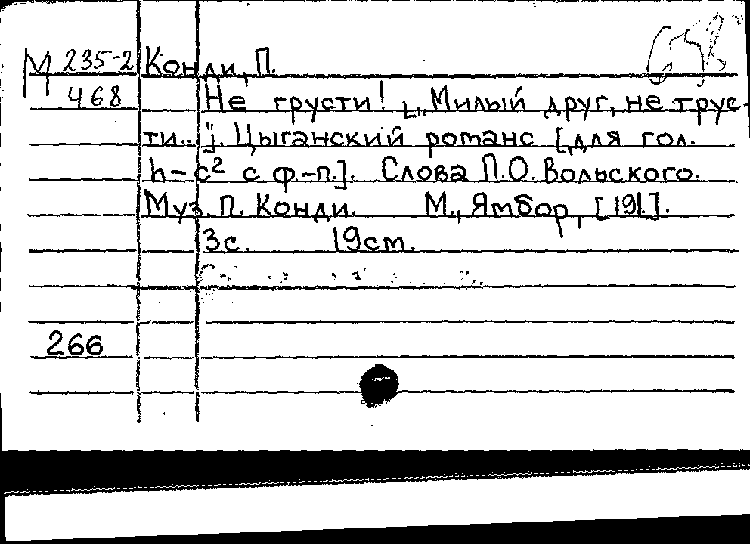 М 235-2 Конди, П.
468 Не грусти! [„Милый друг, не грус-
ти..."]. Цыганский романс [для гол.
h-c² с ф.-п.]. Слова П.О. Вольского.
Муз. П. Конди. М., Ямбор, [191.].
3с. 19см.
266